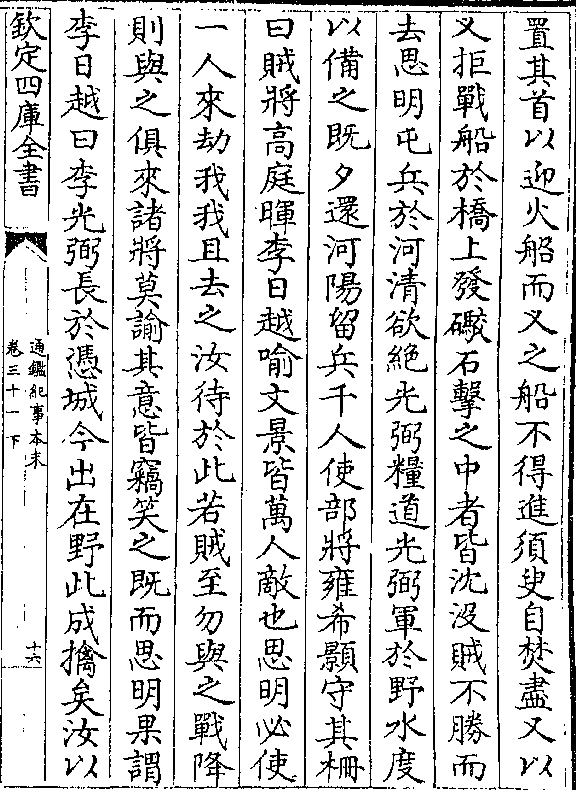 置其首以迎火船而叉之船不得進須臾自焚盡又以
叉拒戰船於橋上發礮石擊之中者皆沈没賊不勝而
去思明屯兵於河清欲絶光弼糧道光弼軍於野水度
以備之既夕還河陽留兵千人使部將雍希顥守其柵
曰賊將高庭暉李日越喻文景皆萬人敵也思明必使
一人來劫我我且去之汝待於此若賊至勿與之戰降
則與之俱來諸將莫諭其意皆竊笑之既而思明果謂
李日越曰李光弼長於憑城今出在野此成擒矣汝以
欽定四庫全書
通鑑紀事本末
卷三十一下
十六